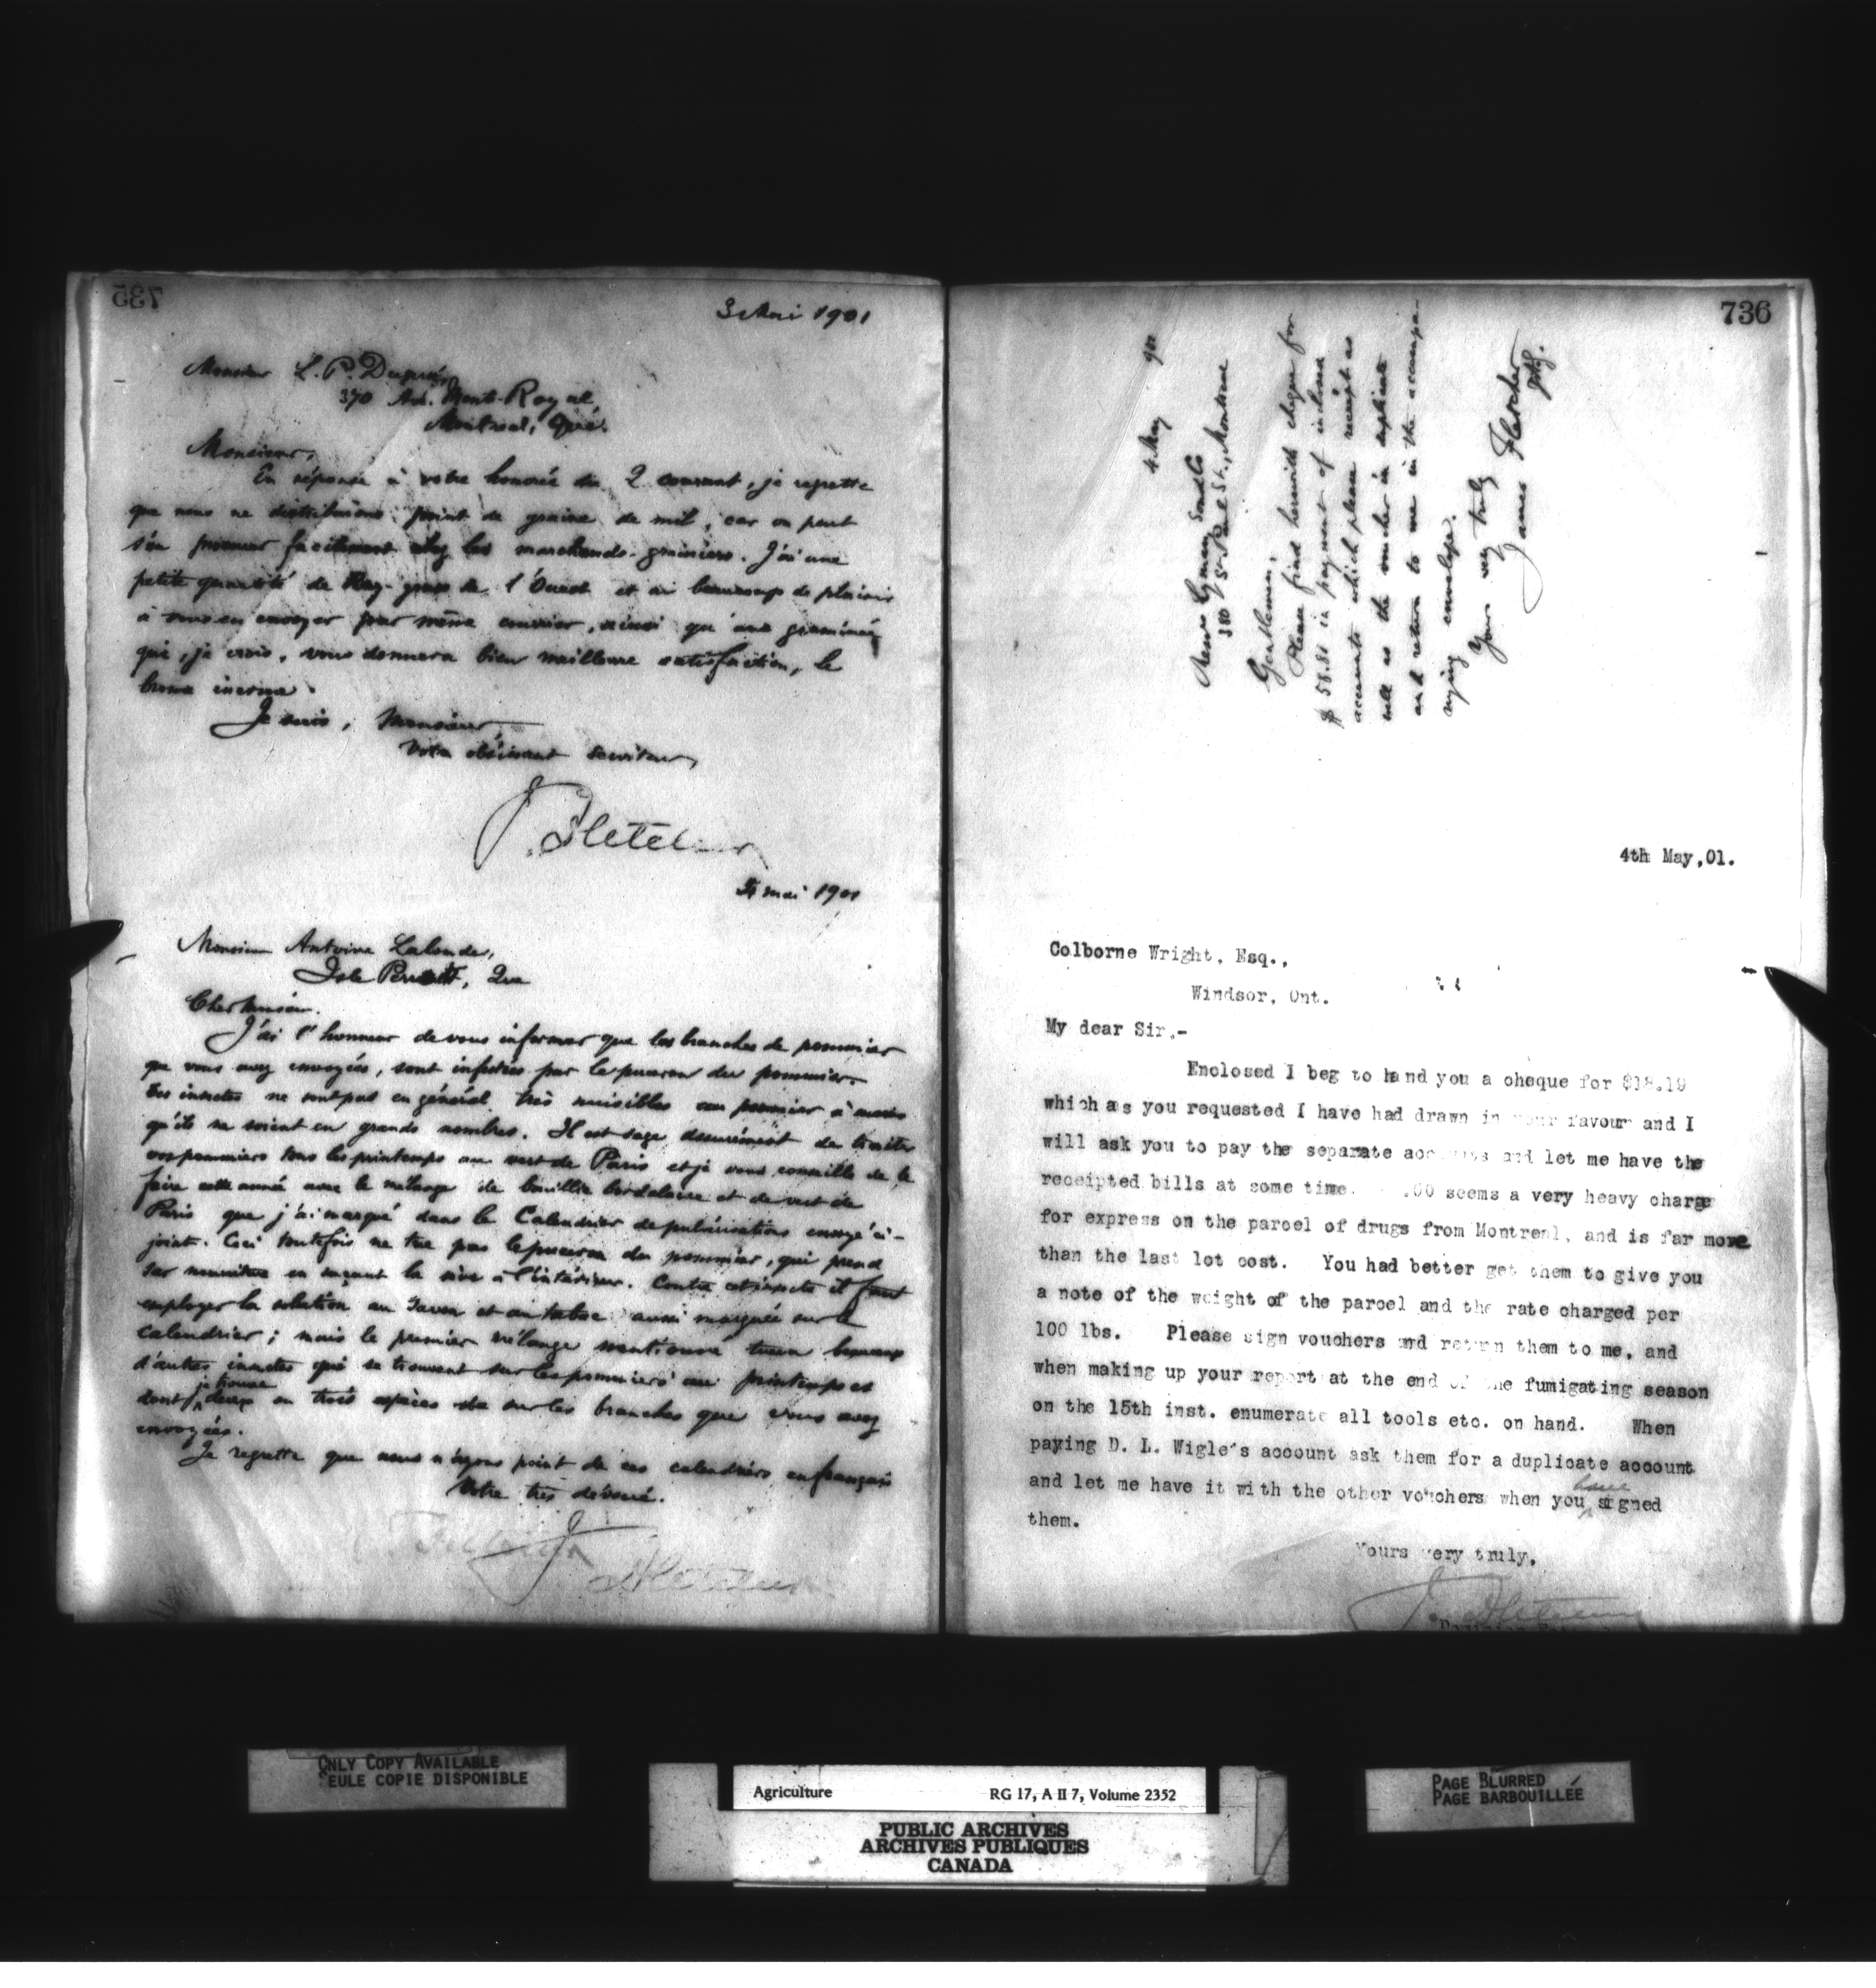 735
3 Mai 1901
Monsieur L. P. Dupuis
370 Av. Mont-Royal
Montreal, Qué.
Monsieur,
En réponse à votre honorée du 2 courant, je regrette
que nous ne distribuions point de graine de mil, car on peut
s'en procurer facilement chez les marchands-grainiers. J'ai une
petite quantité de Ray-grass de l'Ouest et ai beaucoup de plaisir
à vous en envoyer par même courrier, ainsi qu'une graminée
qui, je crois, vous donnera bien meilleure satisfaction, le
brome inerme.
Je suis, Monsieur,
Votre obéissant serviteur,
J. Fletcher
mai 1901
Monsieur Antoine Lalonde,
Isle Perrott, Que
Cher Monsieur.
J'ai l'honneur de vous informer que les branches de pommier
que vous avez envoyées, sont infestées par le puceron du pommier.
Ces insectes ne sont pas en général très nuisibles au pommier à moins
qu'ils ne soient en grands nombres. Il est sage assurément de traiter
vos pommiers tous les printemps au vert de Paris et je vous conseille de le
faire cette année avec le mélange de bouillie bordelaise et de vert de
Paris que j'ai marqué dans le Calendrier de pulvérisations envoyé ci-
joint. Ceci toutefois ne tue pas le puceron du pommier, qui prend
sa nourriture en suçant la sève à l'intérieur. Contre cet insecte il faut
employer la solution au savon et au tabac aussi marquée sur le
calendrier; mais le premier mélange mentionné tuera beaucoup
d'autres insectes qui se trouvent sur les pommiers au printemps et
dont je trouve deux ou trois espèces sur les branches que vous avez
envoyées.
Je regrette que nous n'ayons point de ces calendriers en français
Votre très dévoué.
J. Fletcher
736
4 May 901
Messrs Lyman Sons & Co
380 St. Paul St., Montreal
Gentlemen:
Please find herewith cheque for
$58.81 in payment of inclosed
accounts which please receipt as
well as the voucher in duplicate
and return to me in the accompa-
nying envelope.
Yours very truly
James Fletcher
4th May,01.
Colborne Wright, Esq.,
Windsor, Ont.
My dear Sir,-
Enclosed I beg to hand you a cheque for $18.19
which as you requested I have had drawn in your favour and I
will ask you to pay the separate accounts and let me have the
receipted bills at some time. .00 seems a very heavy charge
for express on the parcel of drugs from Montreal, and is far more
than the last lot cost. You had better get them to give you
a note of the weight of the parcel and the rate charged per
100 lbs. Please sign vouchers and return them to me, and
when making up your report at the end of the fumigating season
on the 15th inst. enumerate all tools etc. on hand. When
paying D. L. Wigle's account ask them for a duplicate account
and let me have it with the other vouchers when you have signed
them.
Yours very truly,
J. Fletcher
ONLY COPY AVAILABLE
SEULE COPIE DISPONIBLE
Agriculture RG 17, A II 7, Volume 2352
PUBLIC ARCHIVES
ARCHIVES PUBLIQUES
CANADA
PAGE BLURRED
PAGE BARBOUILLÉE